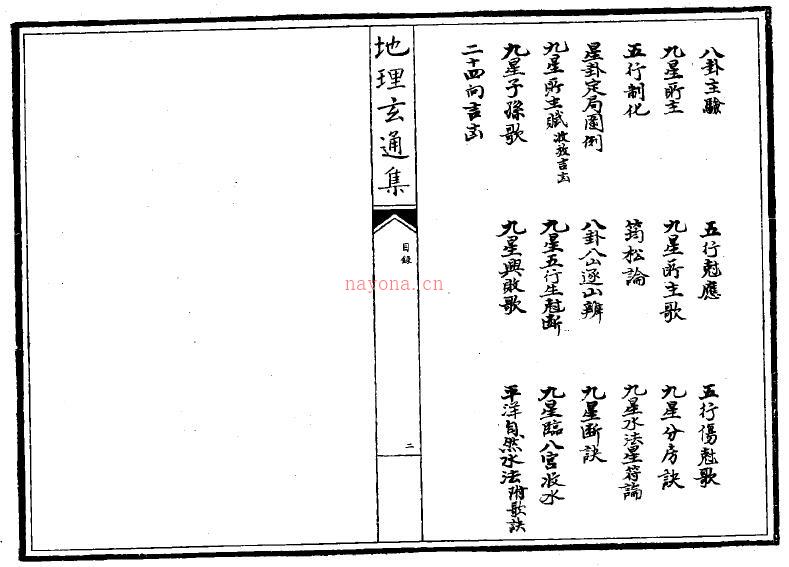 八卦主驗
五行尅應
五行傷尅歌
九星所主
九星所主歌
九星分房訣
五行制化
筠松論
九星水法星符論
星卦定局圖例
八卦八山逐山辨
九星断訣
九星所主賦 收放吉凶
九星五行生尅断
九星臨八宮收水
九星子孫歌
九星興敗歌
平洋自然水法 附歌訣
二十四向吉凶
地理玄通集
目錄
二
nayona.cn